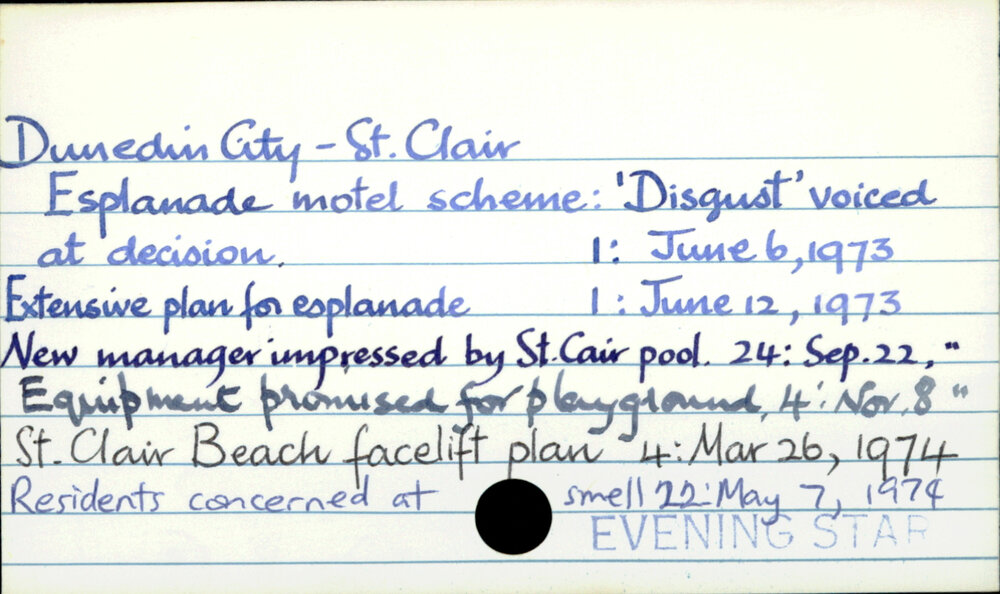 Dunedin City - St. Clair
Esplanade motel scheme: 'Disgust' voiced
at decision. 1: June 6, 1973
Extensive plan for esplanade 1: June 12, 1973
New manager impressed by St. Cair pool. 24: Sep. 22, "
Equipment promised for playground, 4: Nov. 8 "
St. Clair Beach facelift plan 4: Mar 26, 1974
Residents concerned at smell 22: May 7, 1974
EVENING STAR